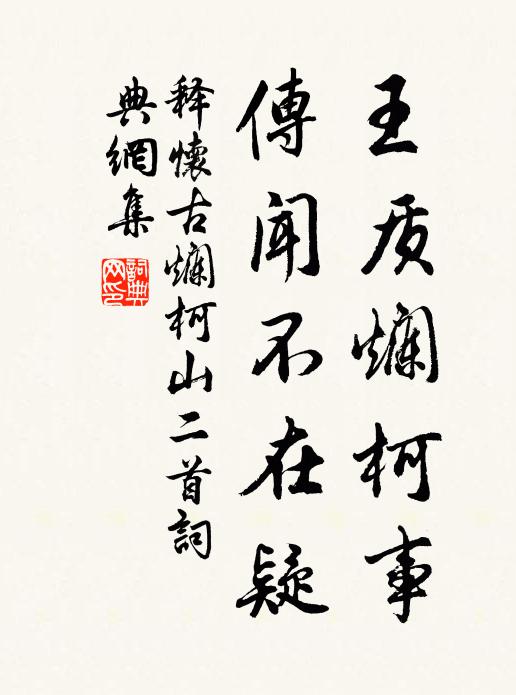 王质爛柯事
傳聞不在疑
释懷古爛柯山二首詞
典網集
詞典
网印